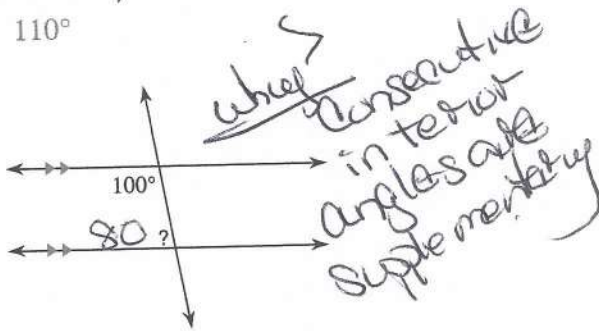 110°
why?
Consecutive
interior
angles are
supplementary
100°
80 ?